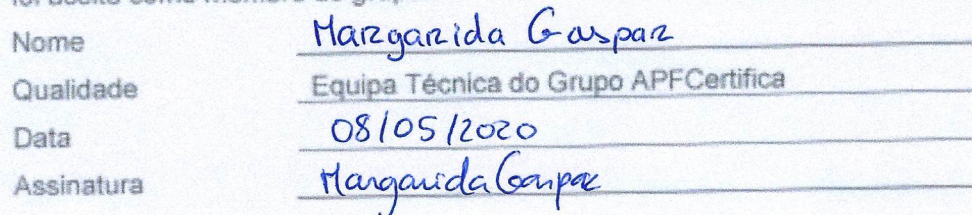 Nome Margarida Gaspar
Qualidade Equipa Técnica do Grupo APFCertifica
Data 08/05/2020
Assinatura Margarida Gaspar